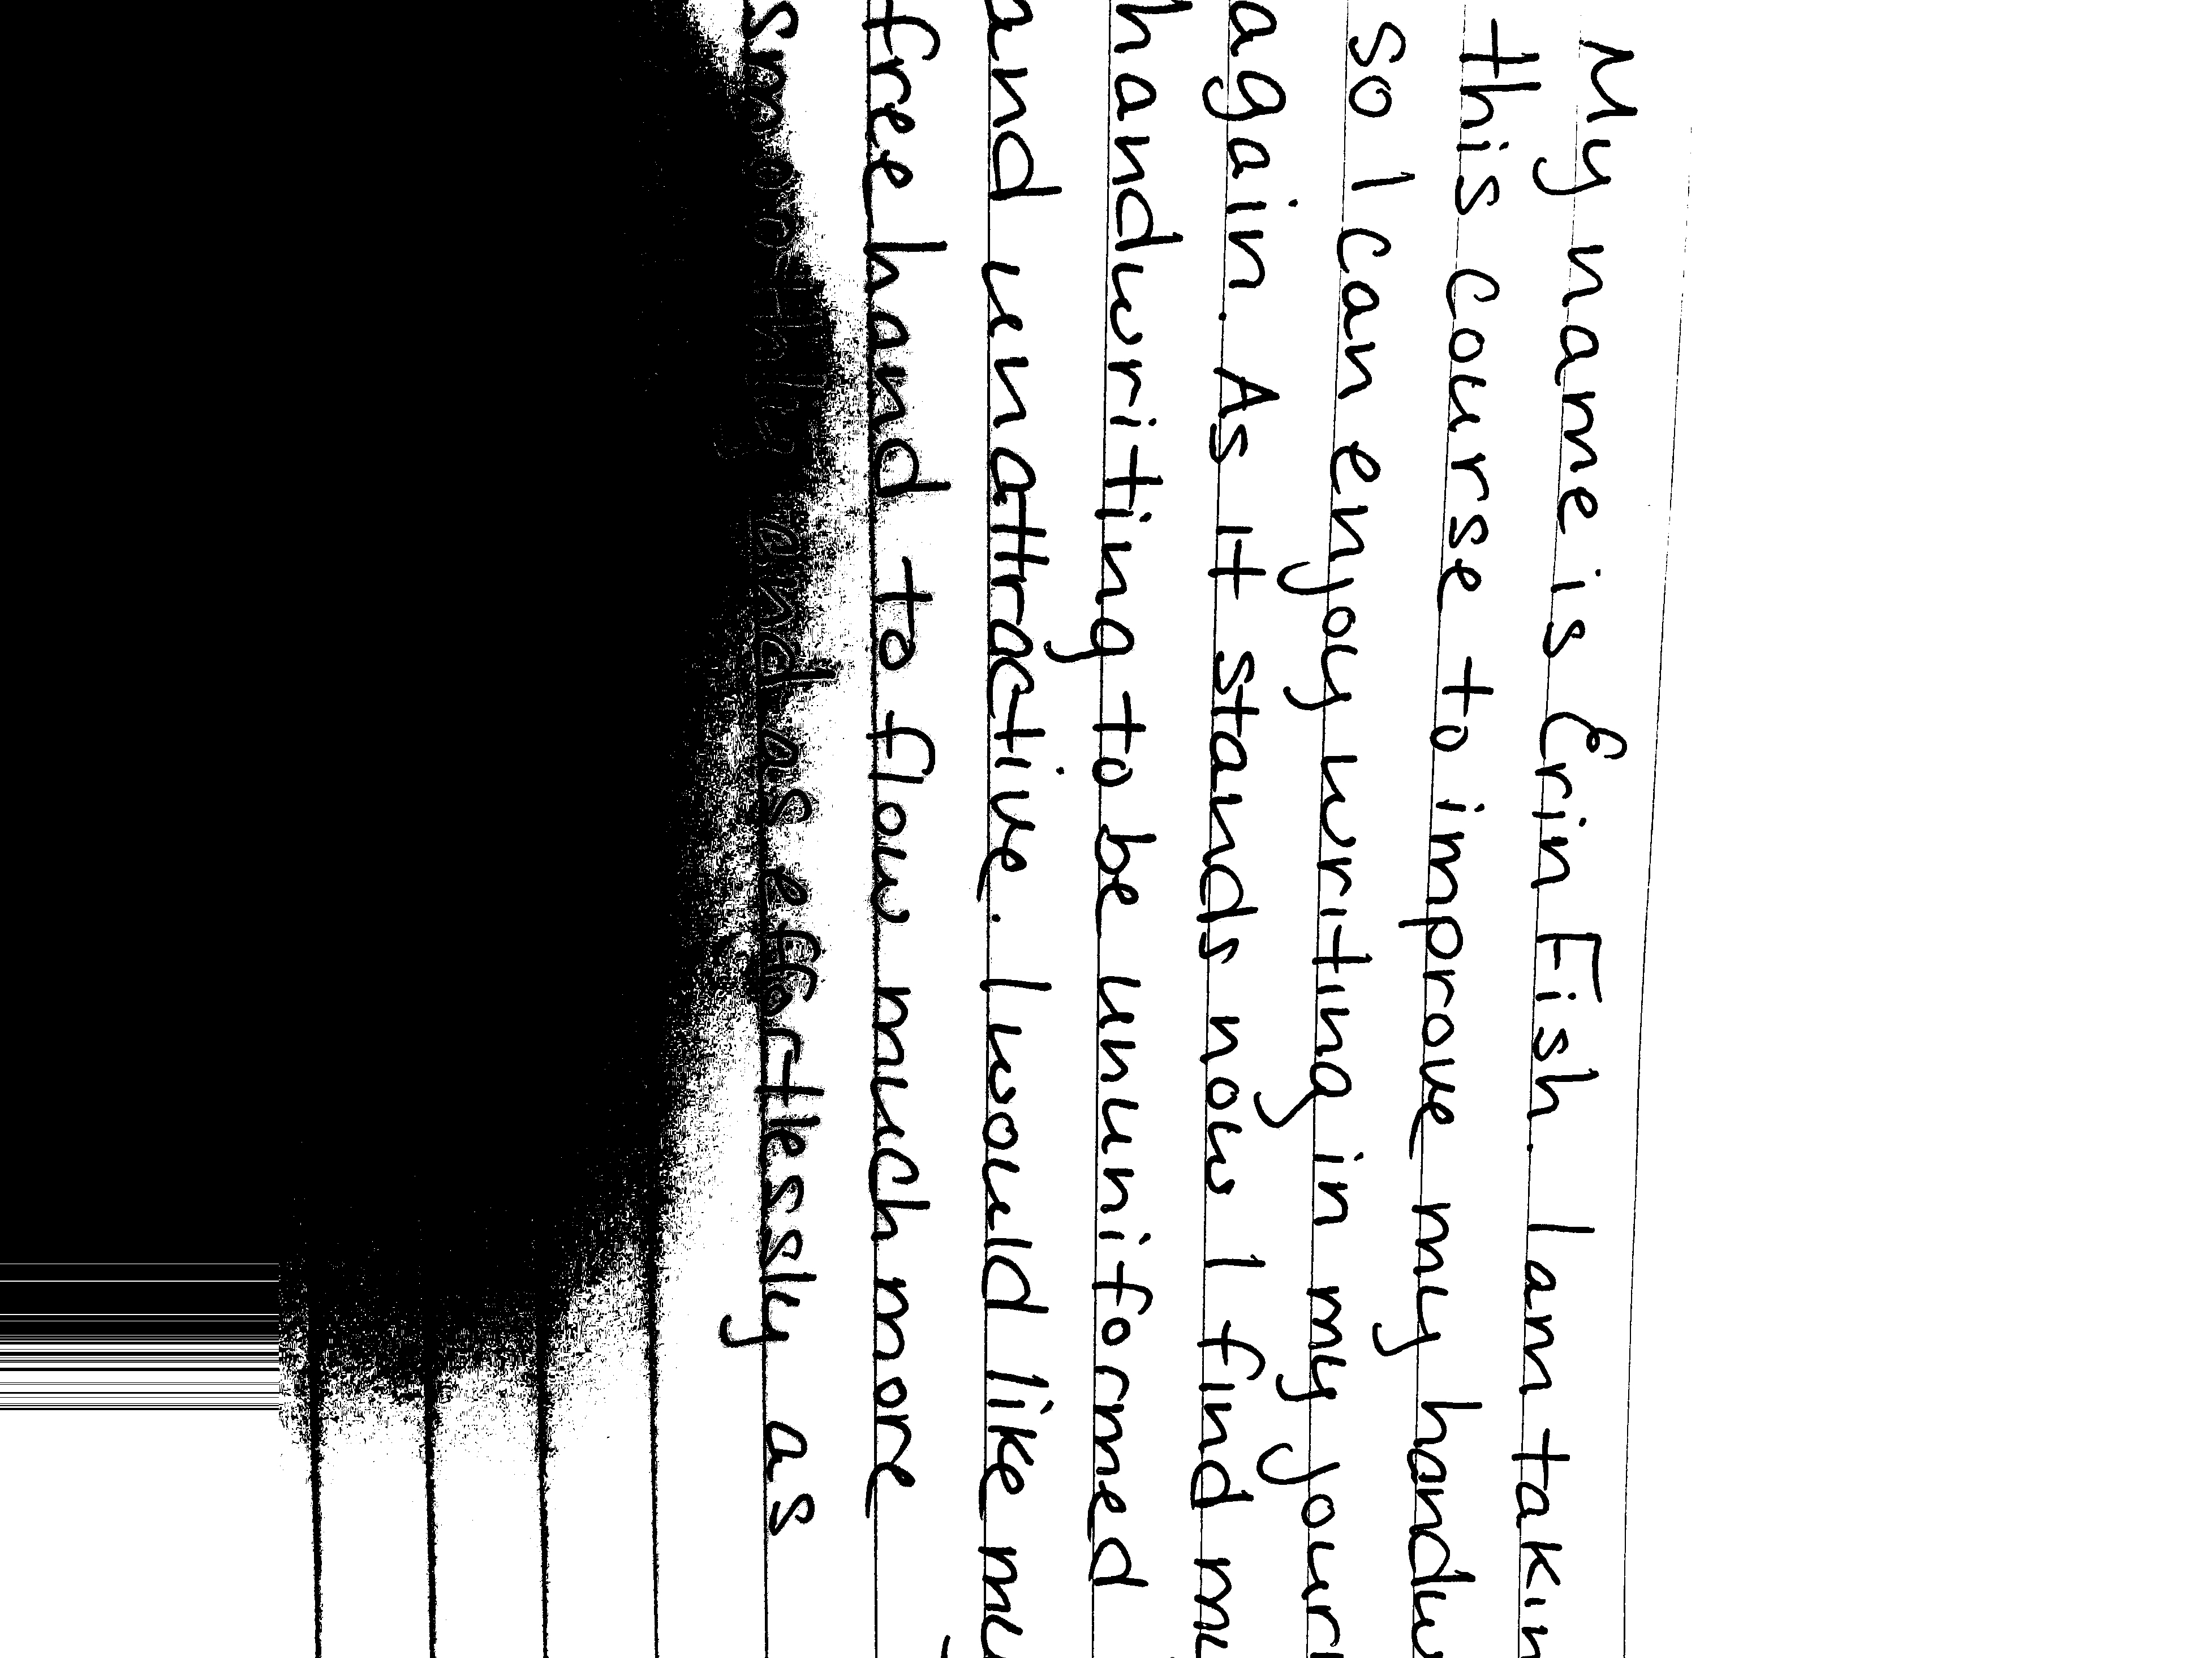 My name is Erin Fish. I am takin
this course to improve my handw
so I can enjoy writing in my journ
again. As it stands now I find m
handwriting to be ununiformed
and unattractive. I would like my
free hand to flow much more
smoothly and as effortlessly as